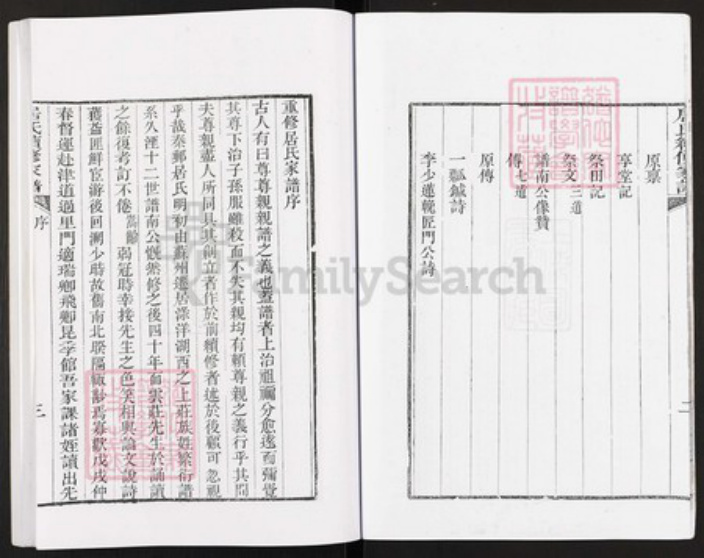 原稟
享堂記
祭田記
祭文三道
譜南公像贊
傳七道
原傳
一瓢鉢詩
李少蓮輓匠門公詩
二
重修居氏家譜序
古人有曰尊尊親親譜之義也蓋譜者上治祖禰分愈遠而彌覺
其尊下治子孫服雖殺而不失其親均有賴尊親之義行乎其間
夫尊親盡人所同具其創立者作於前續修者述於後顧可忽視
乎哉秦郵居氏明初由蘇州遷居漾洋湖西之上莊族姓繁衍譜
系久湮十二世譜南公慨然修之後四十年雲莊先生於誦讀
之餘復考訂不倦 弱冠時幸接先生之色笑相與論文說詩
獲益匪鮮宦游後回溯少時故舊南北睽隔輒渺焉寡歡戊戌仲
春督運赴津道過里門適瑞卿飛卿昆季館吾家課諸姪讀出先
居氏續修家譜 序 三
FamilySearch